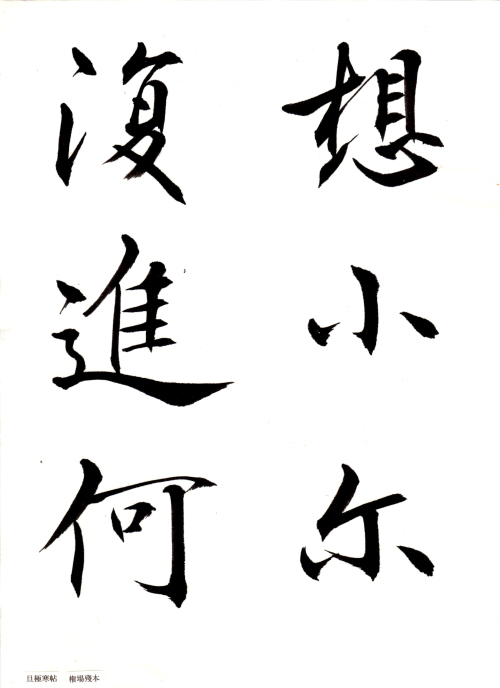 想小尔
復進何
旦極寒帖　権場殘本